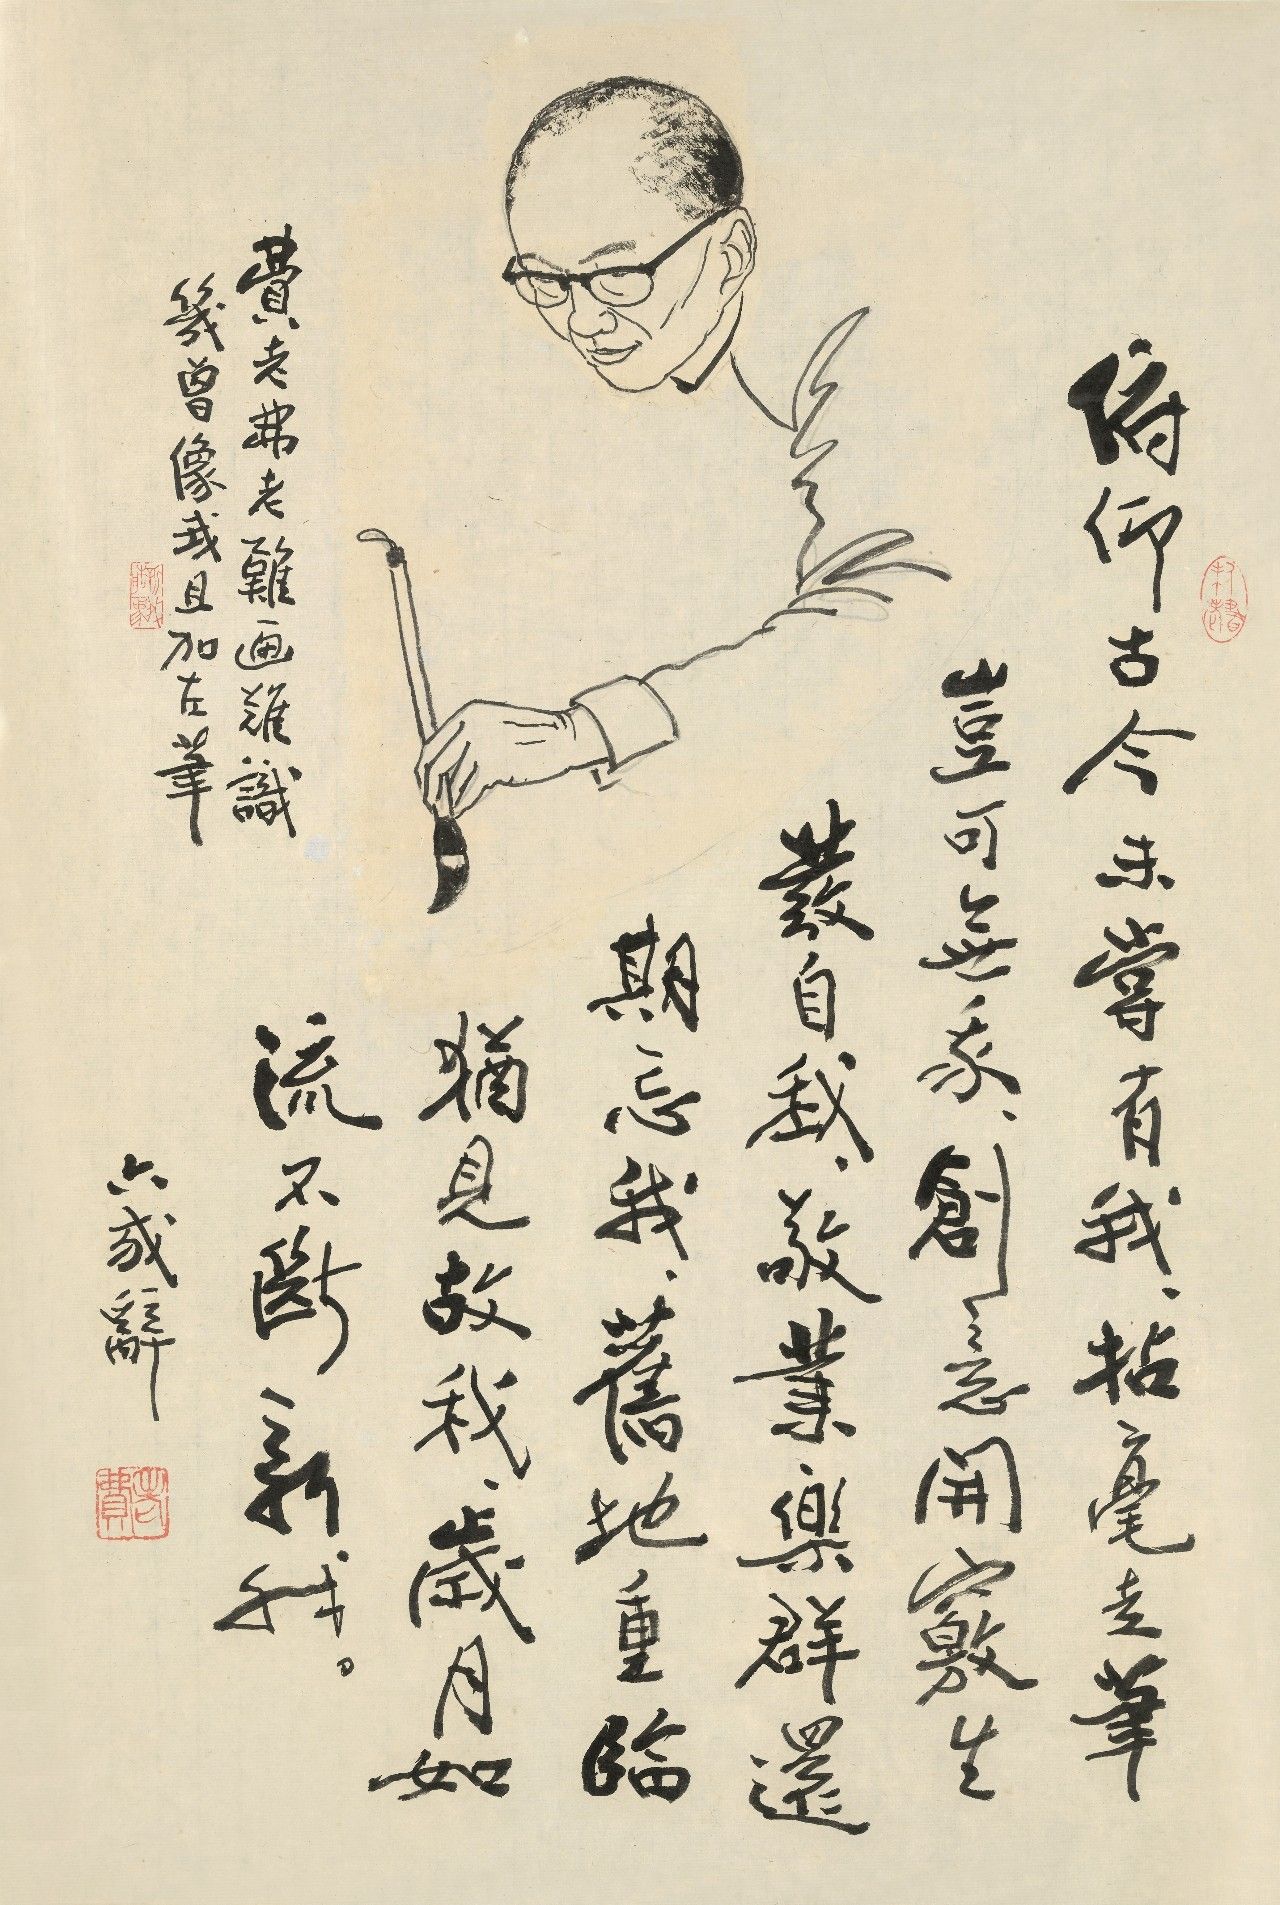 俯仰古今未嘗有我、拈毫走筆
豈可無我、創意開竅生
發自我、敬業樂群還
期忘我、舊地重臨
猶見故我、歲月如
流不斷新我。
六我辭
老費
費老弗老難画難識
幾曾像我且加左筆